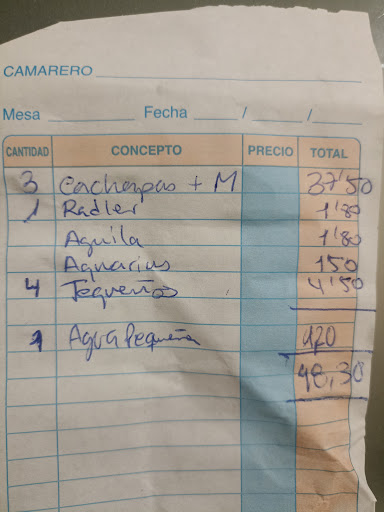 CAMARERO
Mesa Fecha / /
CANTIDAD CONCEPTO PRECIO TOTAL
3 Cachapas + M 37'50
1 Radler 1'80
Aguila 1'80
Aquarius 150
4 Tequeños 4'50
1 Agua Pequeña 1,20
48,30